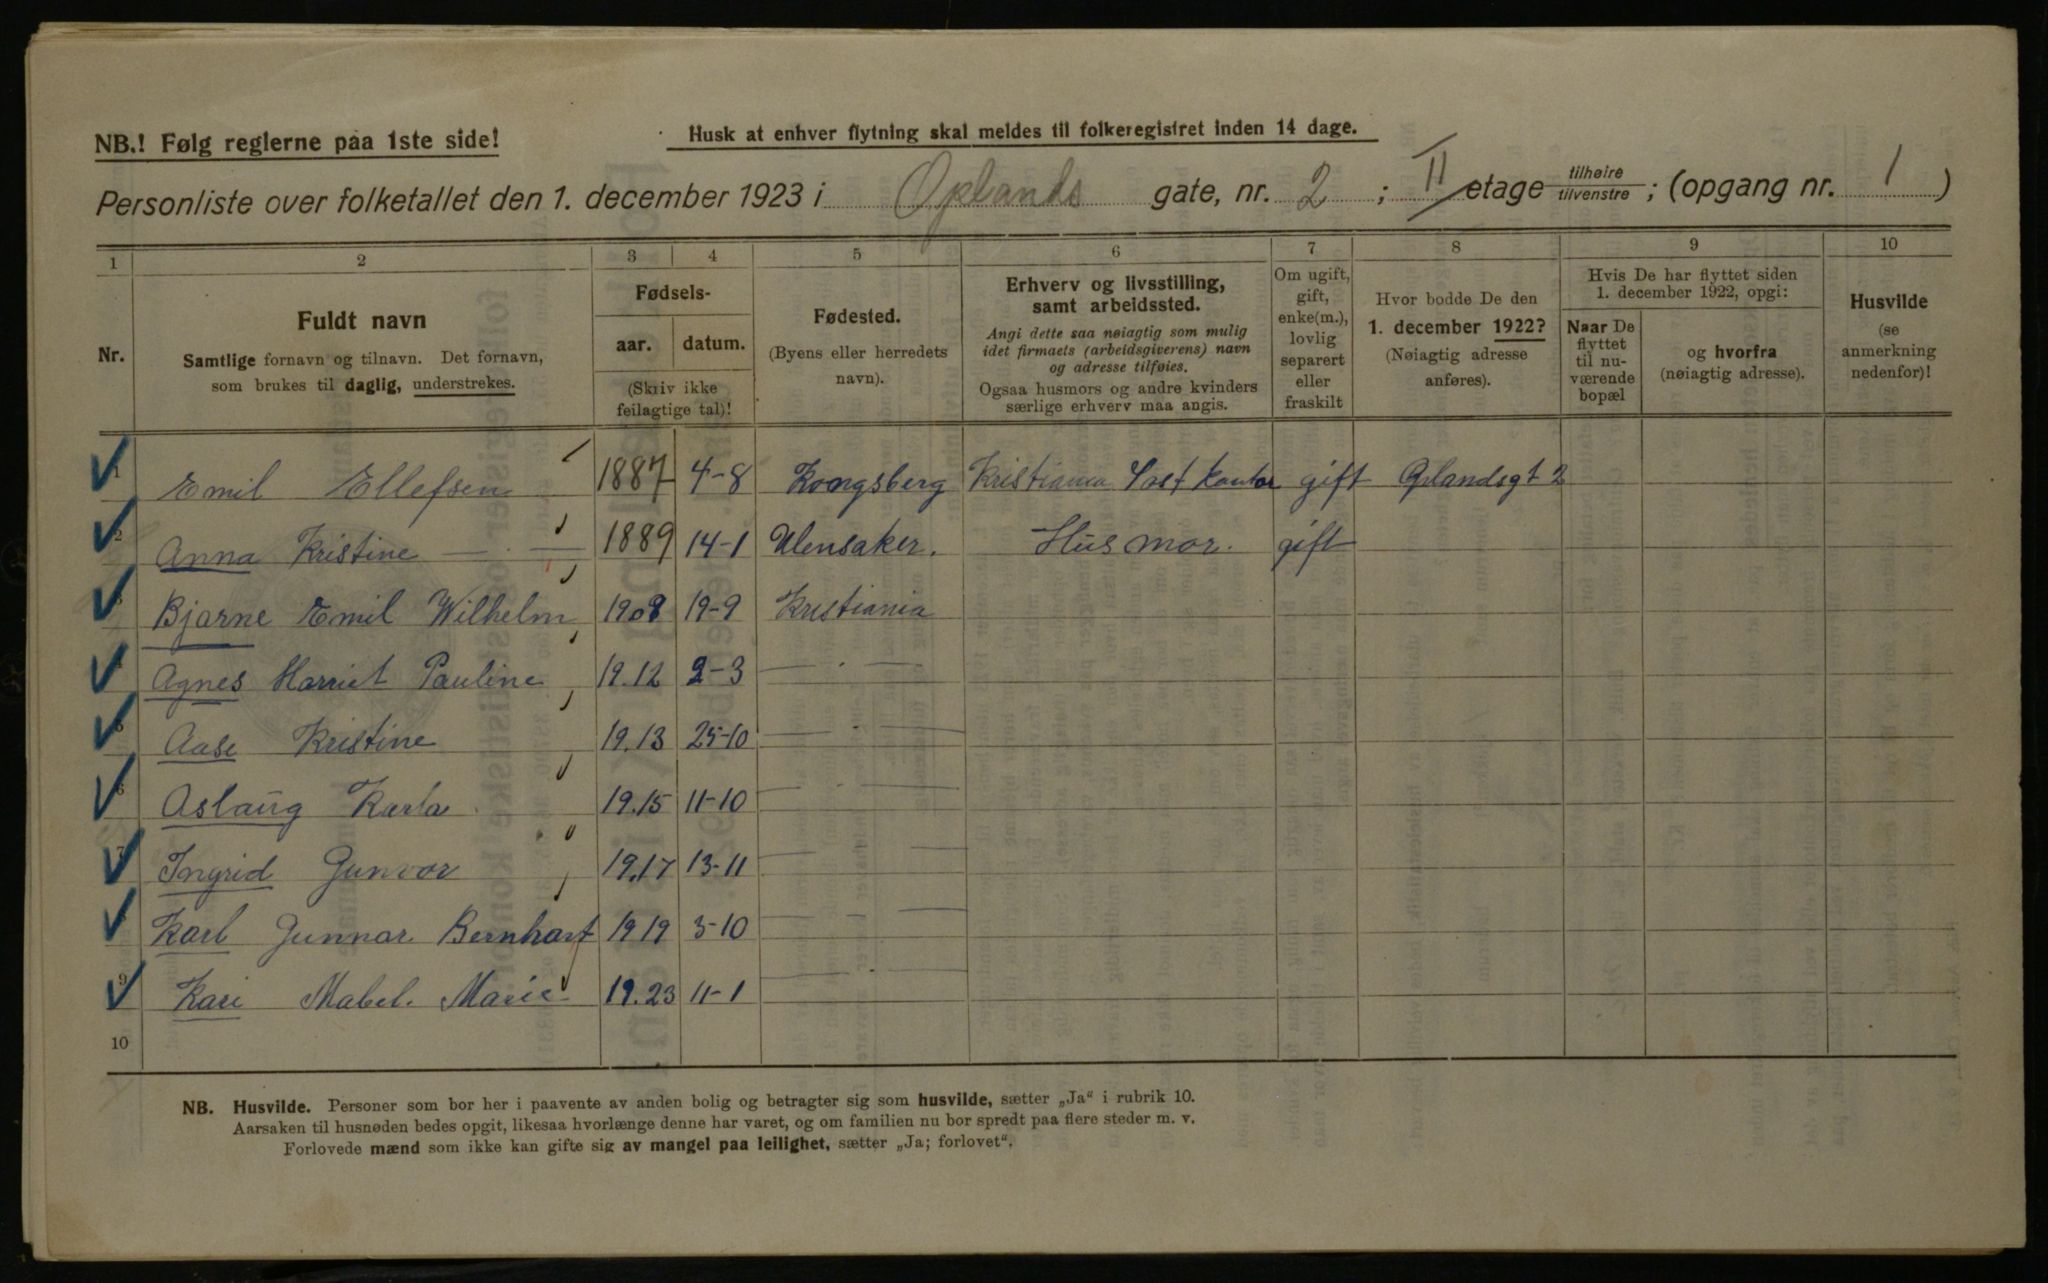 NB.! Følg reglerne paa 1ste side!
Husk at enhver flytning skal meldes til folkeregistret inden 14 dage.
Personliste over folketallet den 1. december 1923 i Oplands gate, nr. 2 ; II etage tilhøire tilvenstre ; (opgang nr. 1 )
1 2 3 4 5 6 7 8 9 10
Nr.
Fuldt navn
Samtlige fornavn og tilnavn. Det fornavn,
som brukes til daglig, understrekes.
Fødsels-
aar. datum.
(Skriv ikke
feilagtige tal)!
Fødested.
(Byens eller herredets
navn).
Erhverv og livsstilling,
samt arbeidssted.
Angi dette saa nøiagtig som mulig
idet firmaets (arbeidsgiverens) navn
og adresse tilføies.
Ogsaa husmors og andre kvinders
særlige erhverv maa angis.
Om ugift,
gift,
enke(m.),
lovlig
separert
eller
fraskilt
Hvor bodde De den
1. december 1922?
(Nøiagtig adresse
anføres).
Hvis De har flyttet siden
1. december 1922, opgi:
Naar De
flyttet
til nu-
værende
bopæl
og hvorfra
(nøiagtig adresse).
Husvilde
(se
anmerkning
nedenfor)!
1 Emil Ellefsen 1887 4-8 Kongsberg Kristiania Post kontor gift Oplandsgt 2
2 Anna Kristine — · — 1889 14-1 Ulensaker. Husmor. gift
3 Bjarne Emil Wilhelm 1908 19-9 Kristiania
4 Agnes Harriet Pauline 19.12 2-3 — · —
5 Aase Kristine 19.13 25-10 — · —
6 Aslaug Karla 19.15 11-10 — · —
7 Ingrid Gunvor 19.17 13-11 — · —
8 Karl Gunnar Bernhart 1919 3-10 — · —
9 Kari Mabel. Marie 19.23 11-1 — · —
10
NB. Husvilde. Personer som bor her i paavente av anden bolig og betragter sig som husvilde, sætter „Ja" i rubrik 10.
Aarsaken til husnøden bedes opgit, likesaa hvorlænge denne har varet, og om familien nu bor spredt paa flere steder m. v.
Forlovede mænd som ikke kan gifte sig av mangel paa leilighet, sætter „Ja; forlovet".